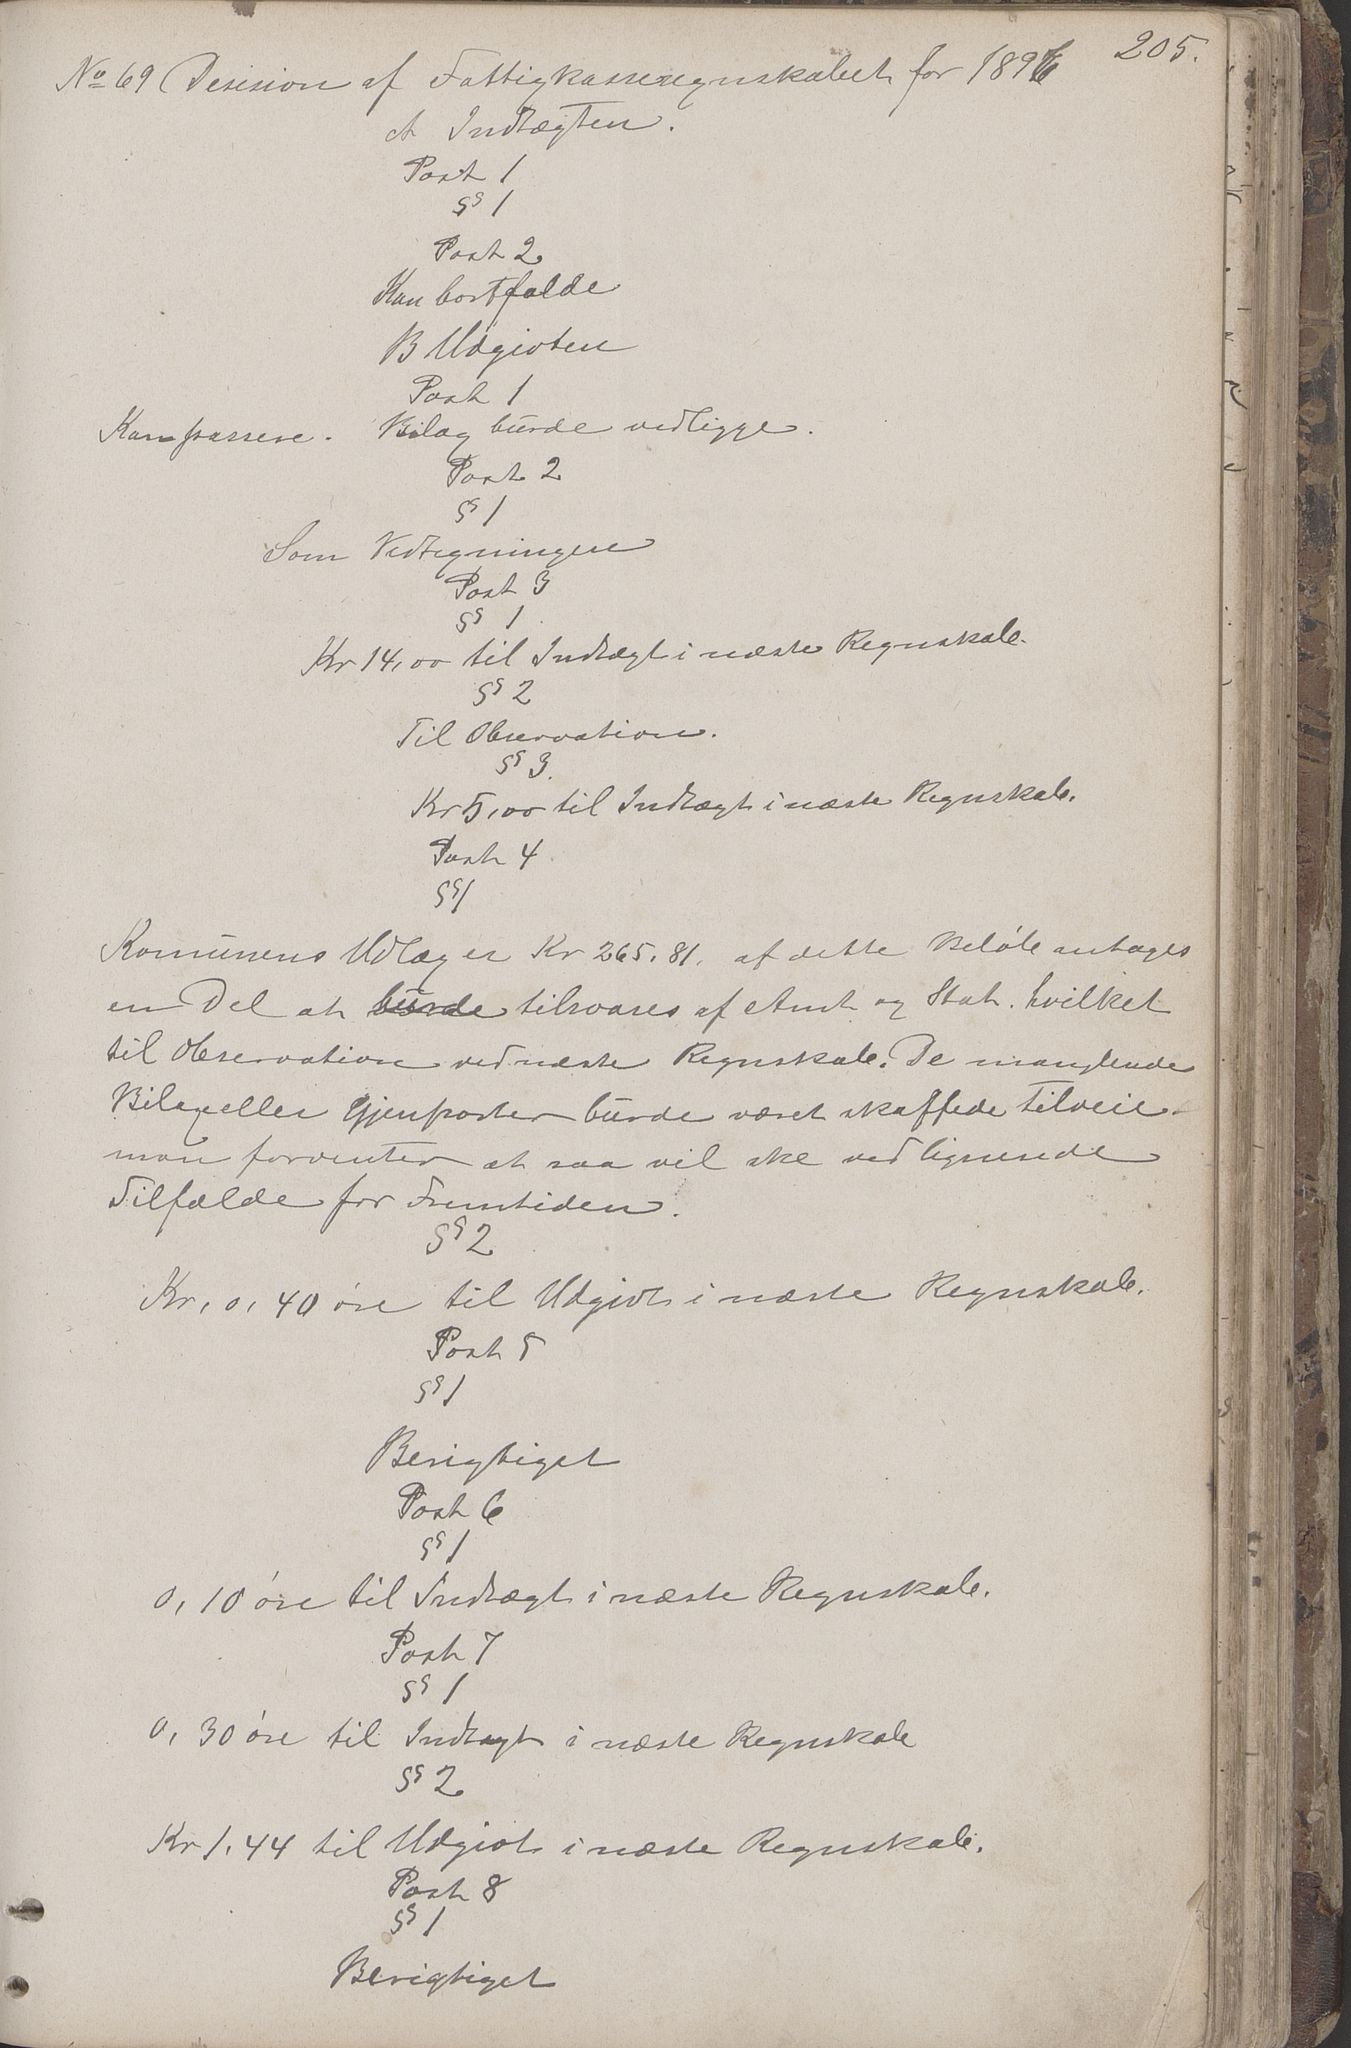 205.
No 69 Desision af Fattigkasseregnskabet for 1896
A Indtægten.
Post 1
§§ 1
Post 2
Kan bortfalde
B Udgivten
Post 1
Kan passere. Bilag burde vedligge.
Post 2
§§ 1
Som Vedtegningen
Post 3
§§ 1
Kr 14,00 til Indtægt i næste Regnskab.
§§ 2
Til Observation.
§§ 3.
Kr 5,00 til Indtægt i næste Regnskab.
Post 4
§§ 1
Komunens Udlæg er Kr 265,81. af dette Beløb antages
en Del at burde tilsvares af Amt og Stat. hvilket
til Observation ved næste Regnskab. De manglende
Bilag eller Gjenparter burde været skaffede tilveie
man forventer at saa vil ske ved lignende
Tilfælde for Fremtiden.
§§ 2
Kr. 0,40 øre til Udgivt i næste Regnskab.
Post 5
§§ 1
Berigtiget
Post 6
§§ 1
0,10 øre til Indtægt i næste Regnskab.
Post 7
§§ 1
0,30 øre til Indtægt i næste Regnskab
§§ 2
Kr 1,44 til Udgivt i næste Regnskab.
Post 8
§§ 1
Berigtiget